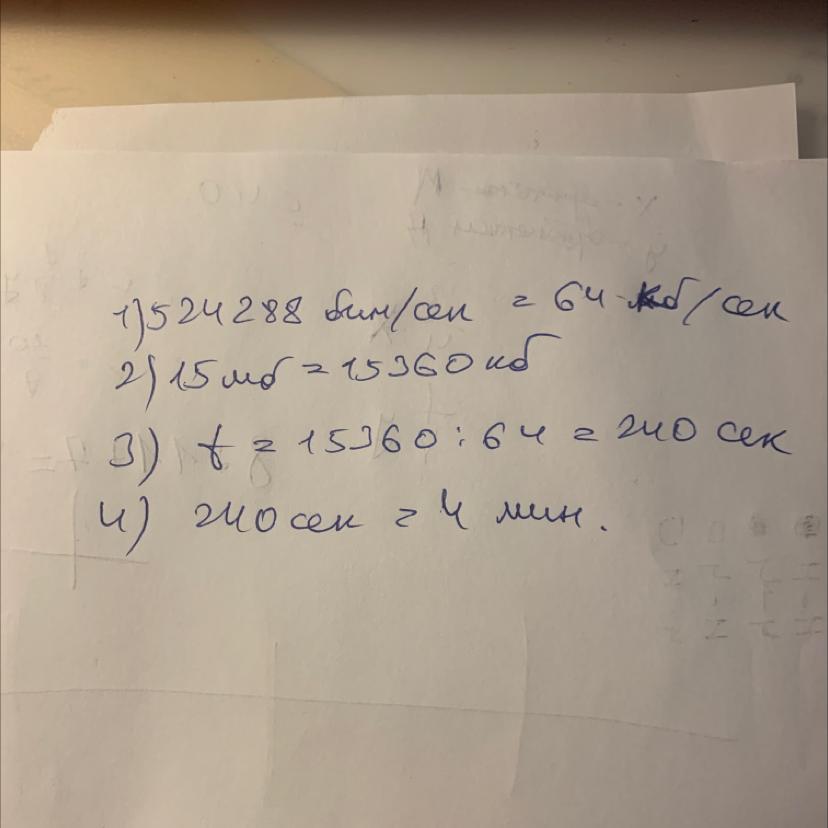 1) 524288 бит/сек = 64 кб/сек
2) 15 мб = 15360 кб
3) t = 15360 : 64 = 240 сек
4) 240 сек = 4 мин.